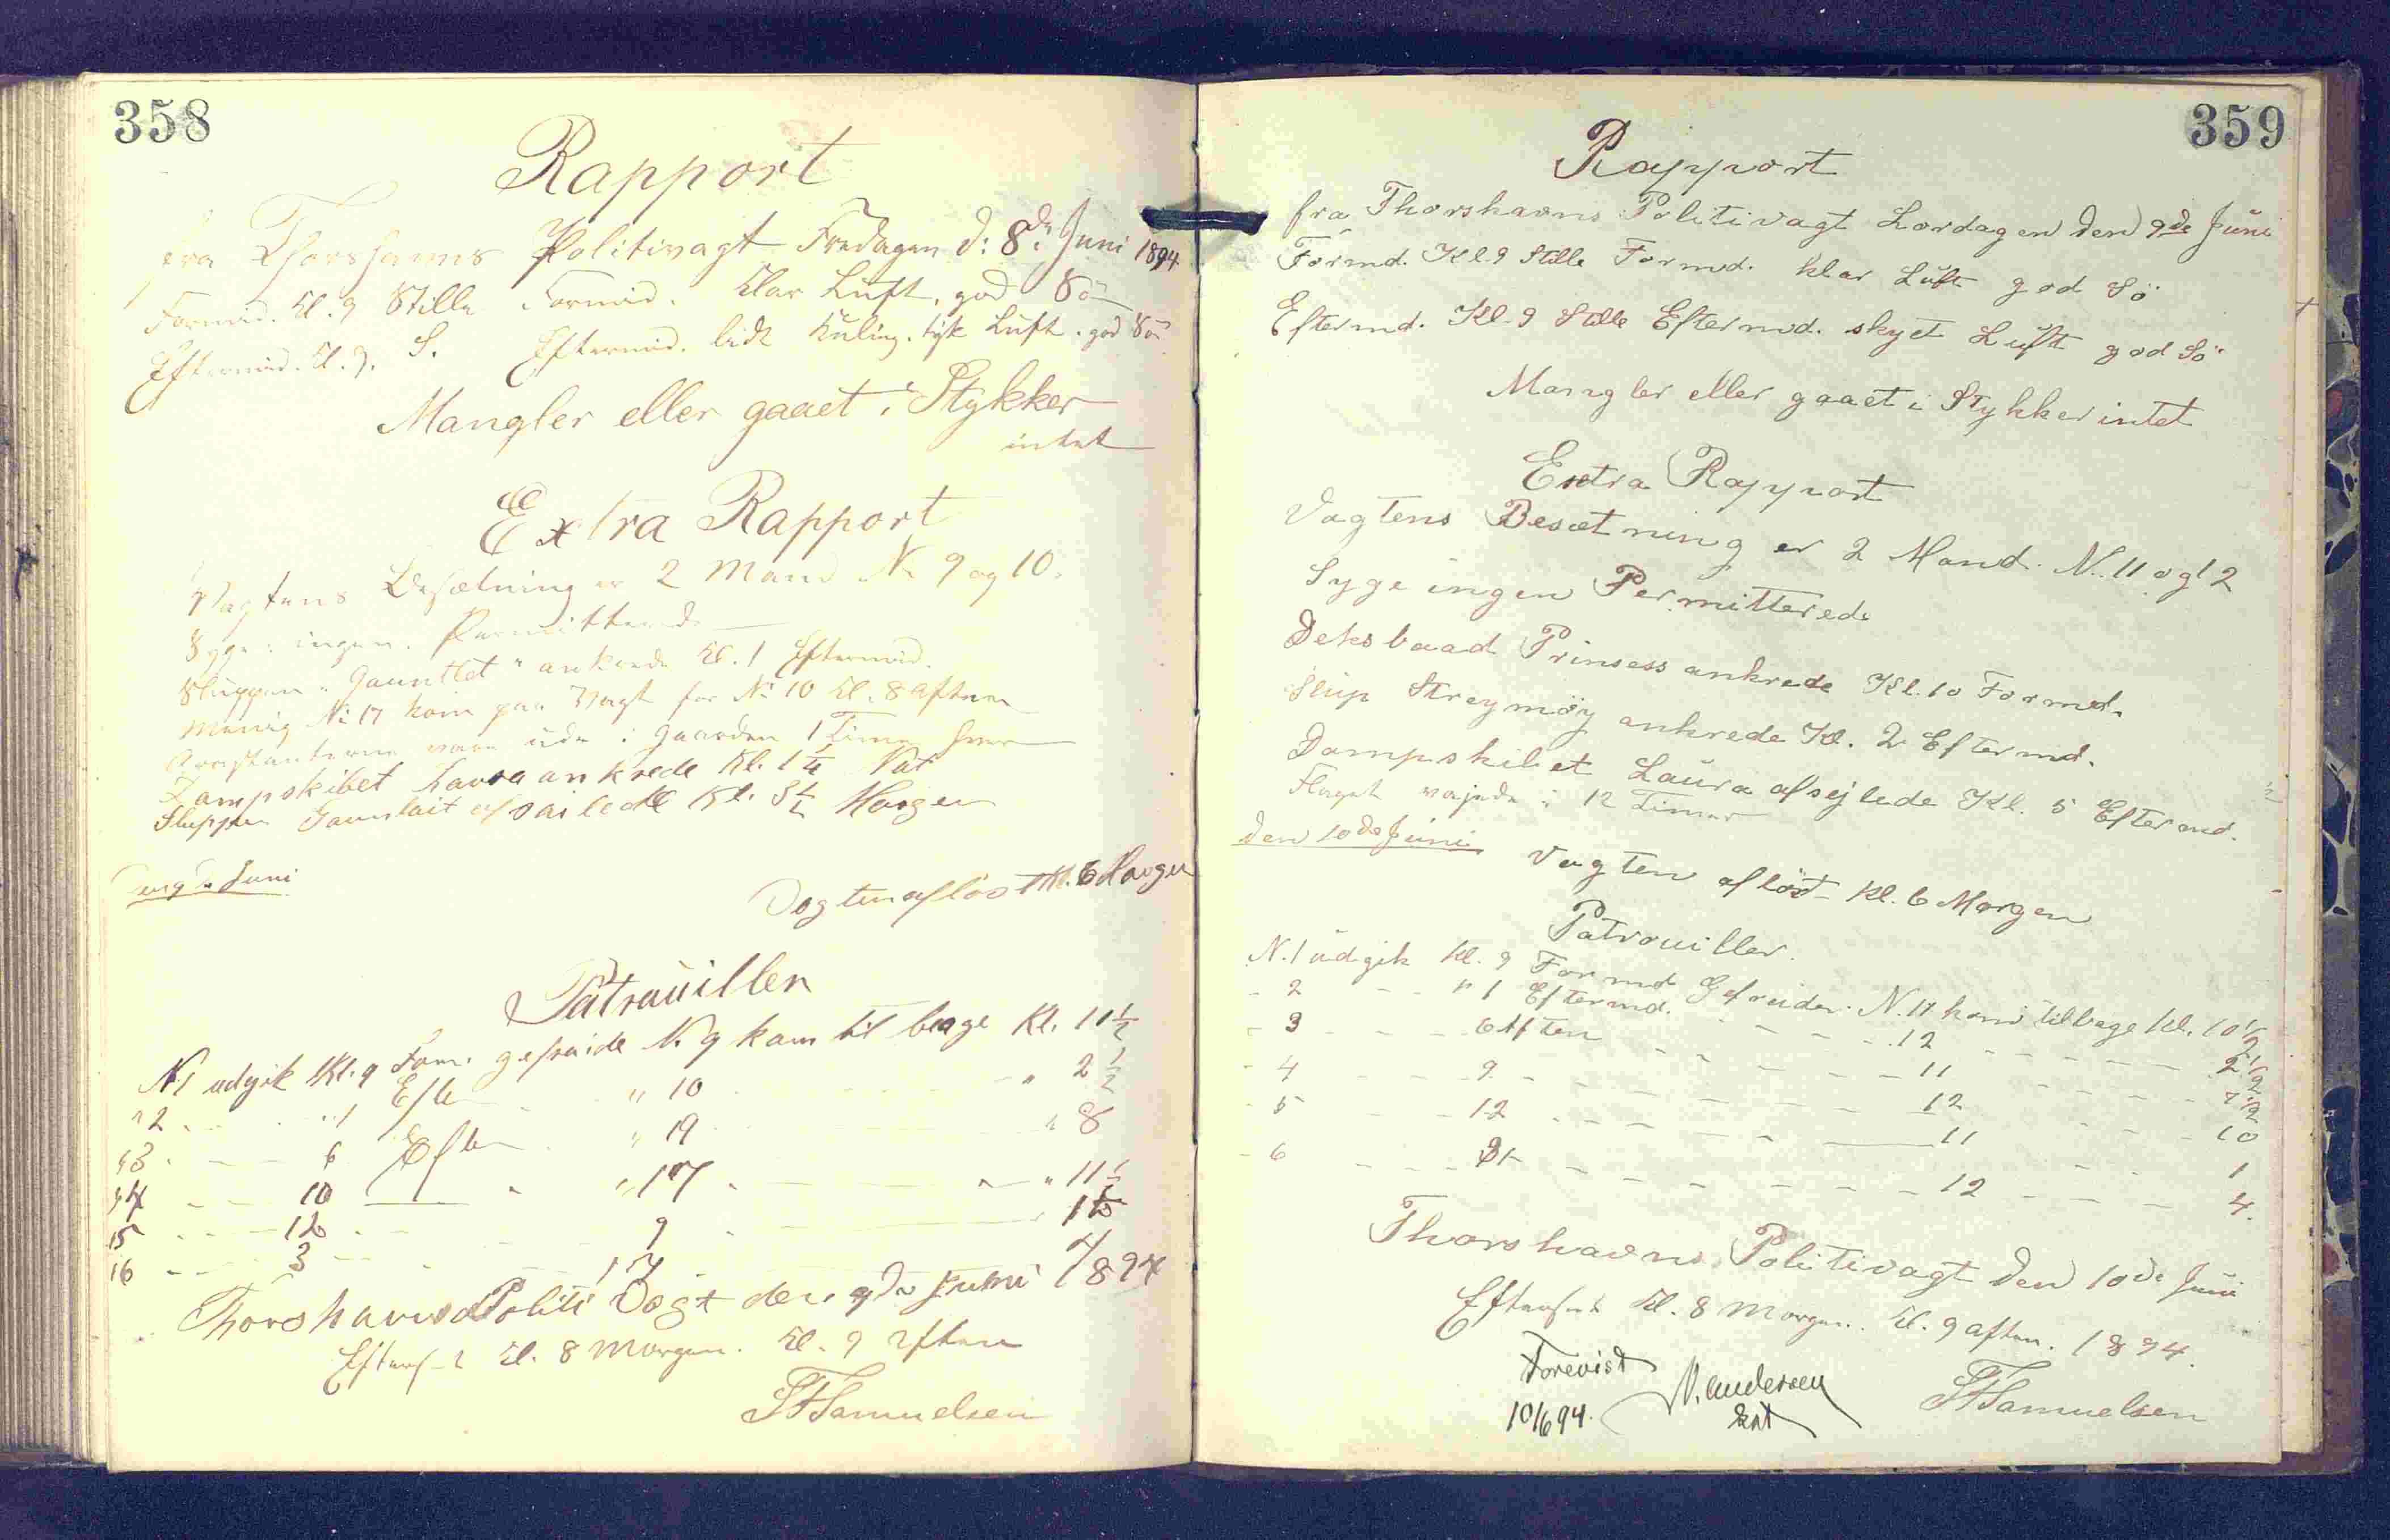 358
Rapport
fra Thorshavns Politivagt Fredagen d: 8de Juni 1894
Formid. Kl. 9 Stille Formid. Klar Luft, god Sö
Eftermid. Kl. 9. S. Eftermid. lidt Kuling. tyk Luft. god Sö
Mangler eller gaaet i Stykker
intet
Extra Rapport
Vagtens Besætning er 2 Mand No 9 og 10.
Syge: ingen. Permitterede
Sluppen "Gauntlet" ankrede Kl. 1 Eftermid.
Menig No 17 kom paa Vagt for No 10 Kl. 8 Aften
Arrestanterne vare ude i Gaarden 1 Time hver
Dampskibet Laura ankrede Kl. 1 1/4 Nat
Sluppen Gauntlait afsailede Kl. 3 1/2 Morgen
den 9de Juni
Vagten aflöst Kl. 6 Morgen
Patrouiller
N1 udgik Kl. 9 Form. gefraide N. 9 kam til bage Kl. 11 1/2
"2 "1 Efter " 10 " 2 1/2
"3 6 Eften " 19 " 8
"4 10 " 17 " 11 1/2
"5 12 9
"6 3 17
Thorshavns Politi Vagt den 9de Juni 1894
Efterset Kl. 8 Morgen. Kl. 9 Aften
Samuelsen
359
Rapport
fra Thorshavns Politivagt Lördagen den 9de Juni
Formd. Kl. 9 Stille Formd. klar Luft god Sö
Eftermd. Kl. 9 Stille Eftermd. skyet Luft god Sö
Mangler eller gaaet i Stykker intet
Extra Rapport
Vagtens Besætning er 2 Mand. N. 11 og 12
Syge ingen Permitterede
Deksbaad Prinsess ankrede Kl. 10 Formd.
Slup Streymöy ankrede Kl. 2 Eftermd.
Dampskibet Laura afsejlede Kl. 5 Eftermd.
Flaget vajede i 12 Timer
den 10de Juni Vagten aflöst Kl. 6 Morgen
Patrouiller.
N. 1 udgik Kl. 9 Formd Gefreider N. 11 kom tilbage Kl. 10 1/2
- 2 " 1 Eftermd. 12 2 1/2
- 3 6 Aften 11
- 4 9 12 10
- 5 12 11 1
- 6 12 4.
Thorshavns Politivagt den 10de Juni
Efterset Kl. 8 Morgen. Kl. 9 Aften. 1894.
Forevist
10/6 94. Andersen
Samuelsen